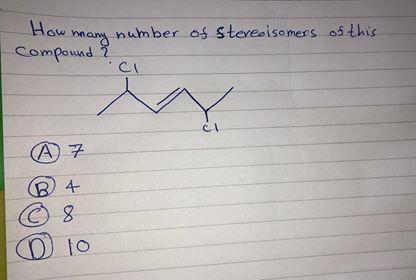 How many number of Stereoisomers of this
compound?
Cl
Cl
A 7
B 4
C 8
D 10